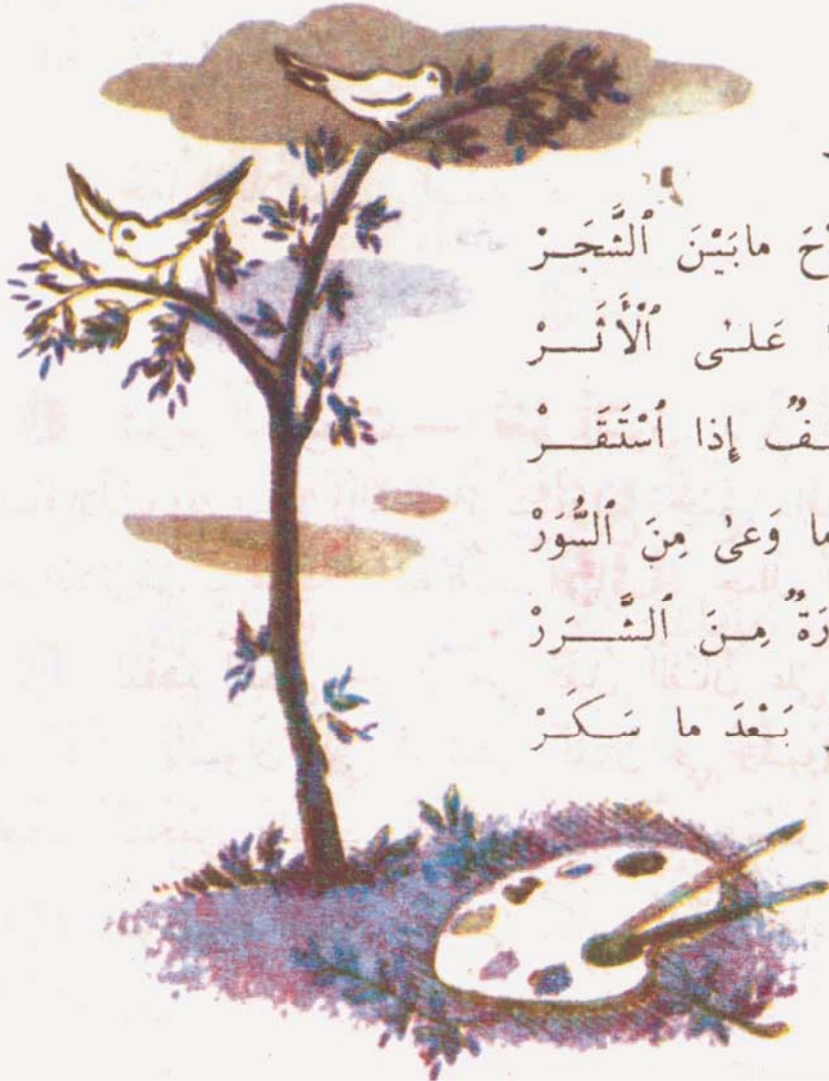 مابَيْنَ ٱلشَّجَرْ
عَلىٰ ٱلْأَثَرْ
إِذا ٱسْتَقَرْ
وَعىٰ مِنَ ٱلسُّوَرْ
مِنَ ٱلشَّرَرْ
بَعْدَ ما سَكَرْ